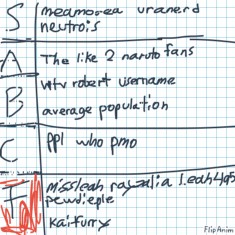 S
meamorea uranerd
neutrois
A
The like 2 naruto fans
B
wtv robert username
average population
C
ppl who pmo
F
missleah
pewdieple
kaifurry
FlipAnim